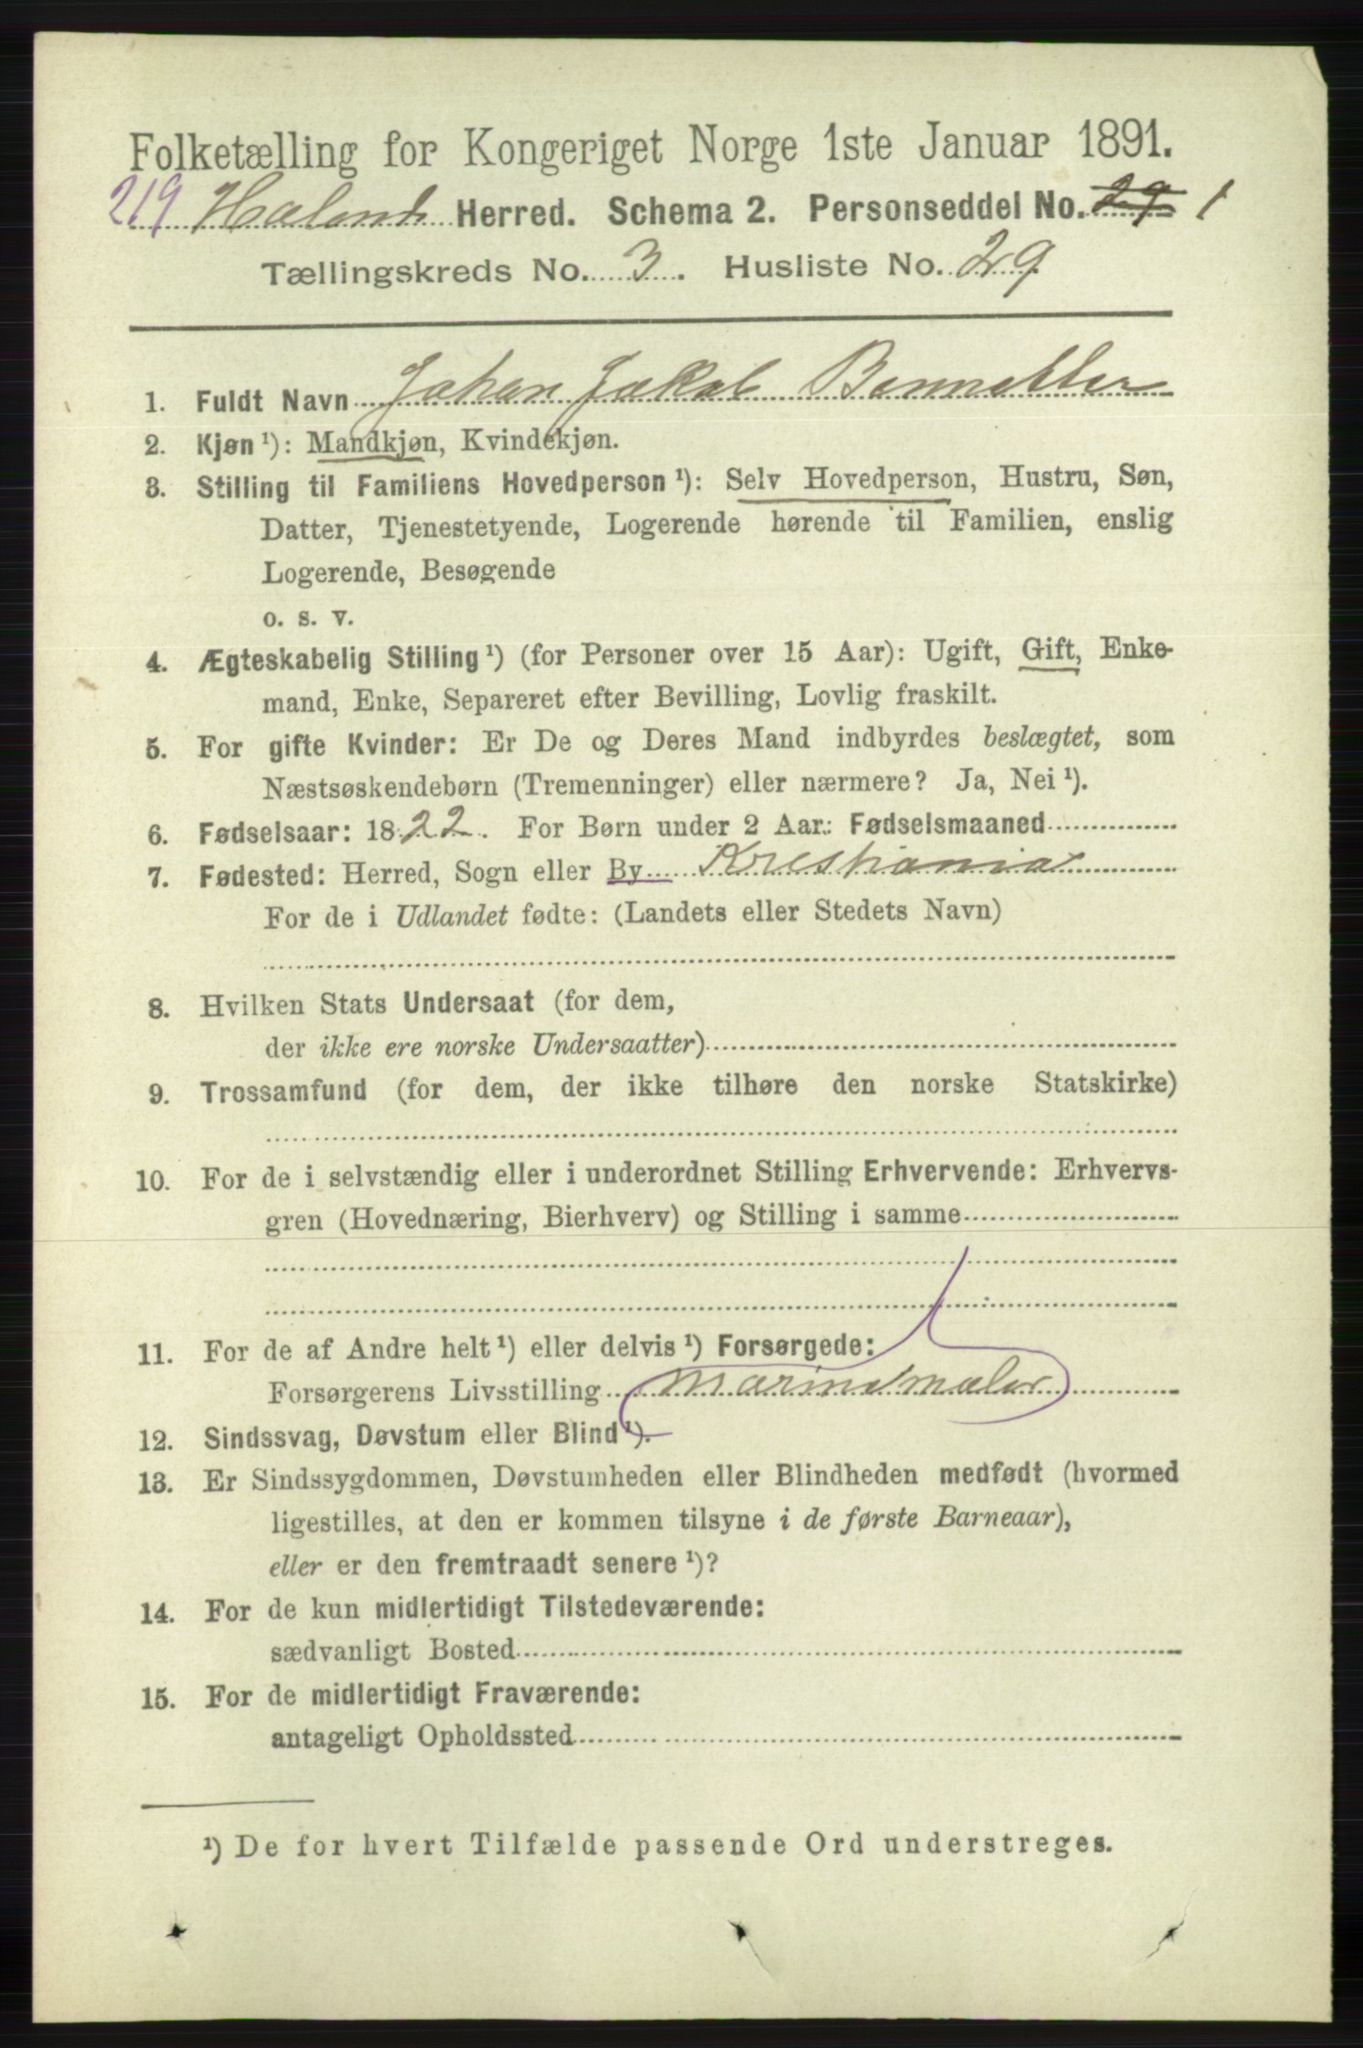 Folketælling for Kongeriget Norge 1ste Januar 1891.
219 Haaland Herred. Schema 2. Personseddel No. 29 1
Tællingskreds No. 3. Husliste No. 29
1. Fuldt Navn Johan Jakob Bennetter
2. Kjøn ¹): Mandkjøn, Kvindekjøn.
3. Stilling til Familiens Hovedperson ¹): Selv Hovedperson, Hustru, Søn,
Datter, Tjenestetyende, Logerende hørende til Familien, enslig
Logerende, Besøgende
o. s. v.
4. Ægteskabelig Stilling ¹) (for Personer over 15 Aar): Ugift, Gift, Enke-
mand, Enke, Separeret efter Bevilling, Lovlig fraskilt.
5. For gifte Kvinder: Er De og Deres Mand indbyrdes beslægtet, som
Næstsøskendebørn (Tremenninger) eller nærmere? Ja, Nei ¹).
6. Fødselsaar: 1822. For Børn under 2 Aar: Fødselsmaaned
7. Fødested: Herred, Sogn eller By Krestiania
For de i Udlandet fødte: (Landets eller Stedets Navn)
8. Hvilken Stats Undersaat (for dem,
der ikke ere norske Undersaatter)
9. Trossamfund (for dem, der ikke tilhøre den norske Statskirke)
10. For de i selvstændig eller i underordnet Stilling Erhvervende: Erhvervs-
gren (Hovednæring, Bierhverv) og Stilling i samme
11. For de af Andre helt ¹) eller delvis ¹) Forsørgede:
Forsørgerens Livsstilling Marinemaler
12. Sindssvag, Døvstum eller Blind ¹).
13. Er Sindssygdommen, Døvstumheden eller Blindheden medfødt (hvormed
ligestilles, at den er kommen tilsyne i de første Barneaar),
eller er den fremtraadt senere ¹)?
14. For de kun midlertidigt Tilstedeværende:
sædvanligt Bosted
15. For de midlertidigt Fraværende:
antageligt Opholdssted
¹) De for hvert Tilfælde passende Ord understreges.